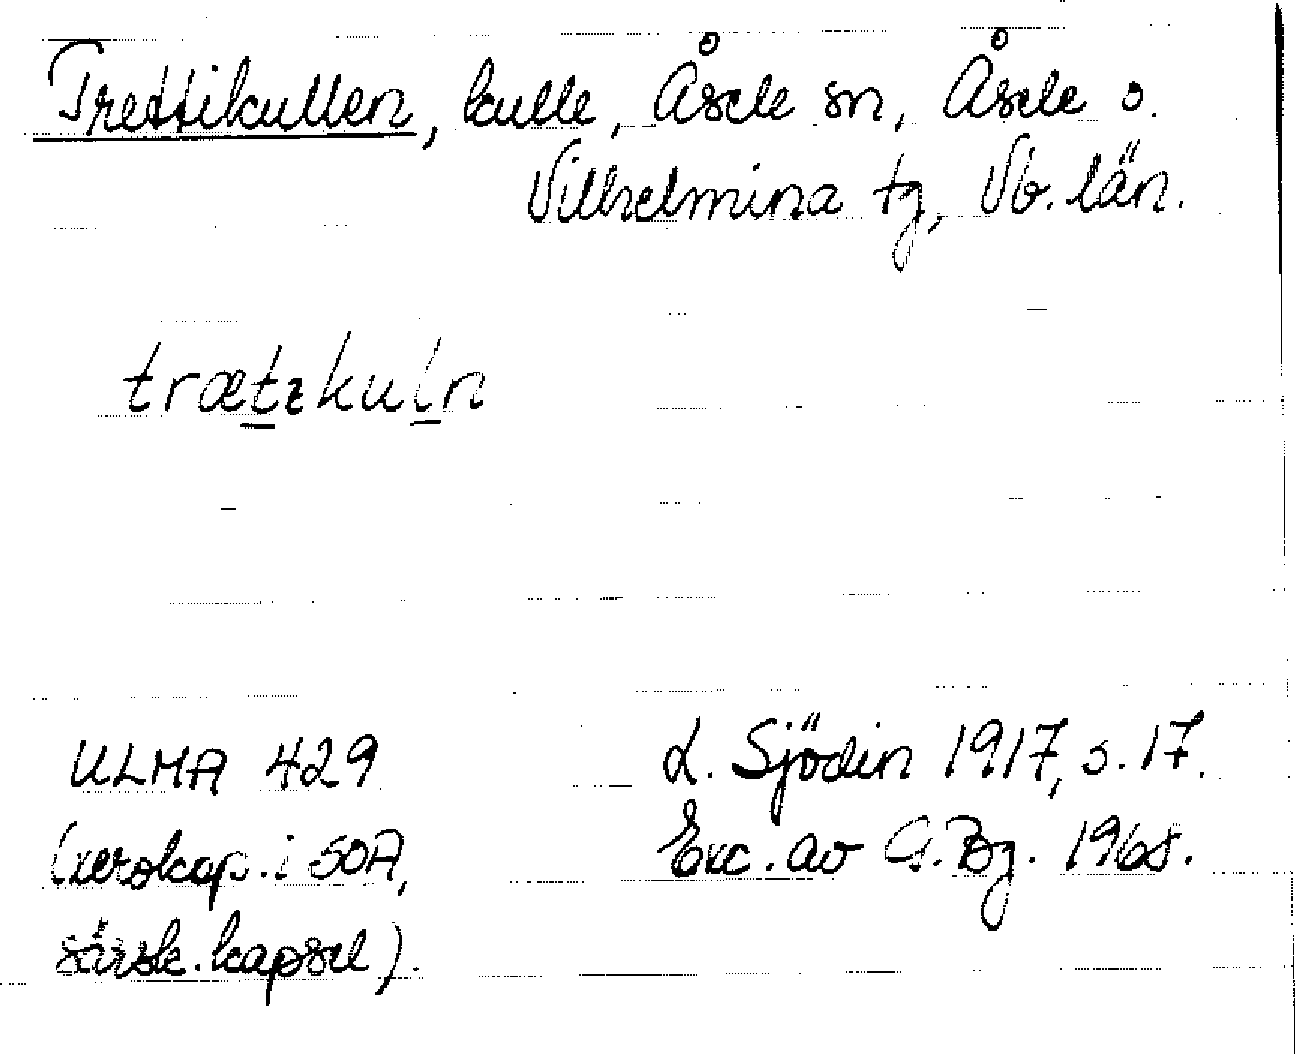 Trettikullen, kulle, Åsele sn, Åsele o.
Vilhelmina tg, Vb. län.
trætɩkuln
ULMA 429
(xerokop. i SOA,
särsk. kapsel).
L. Sjödin 1917, s. 17.
Exc. av G. Bg. 1968.